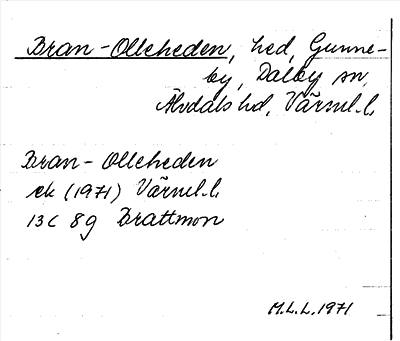 Bran-Olleheden, hed, Gunne-
by, Dalby sn,
Älvdals hd, Värml. l.
Bran-Olleheden
ek (1971) Värml. l.
13C 8g Brattmon
M.L.L. 1971